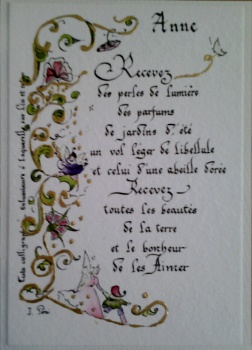 Anne
Recevez
des perles de lumière
des parfums
de jardins d'été
un vol léger de libellule
et celui d'une abeille dorée
Recevez
toutes les beautés
de la terre
et le bonheur
de les Aimer